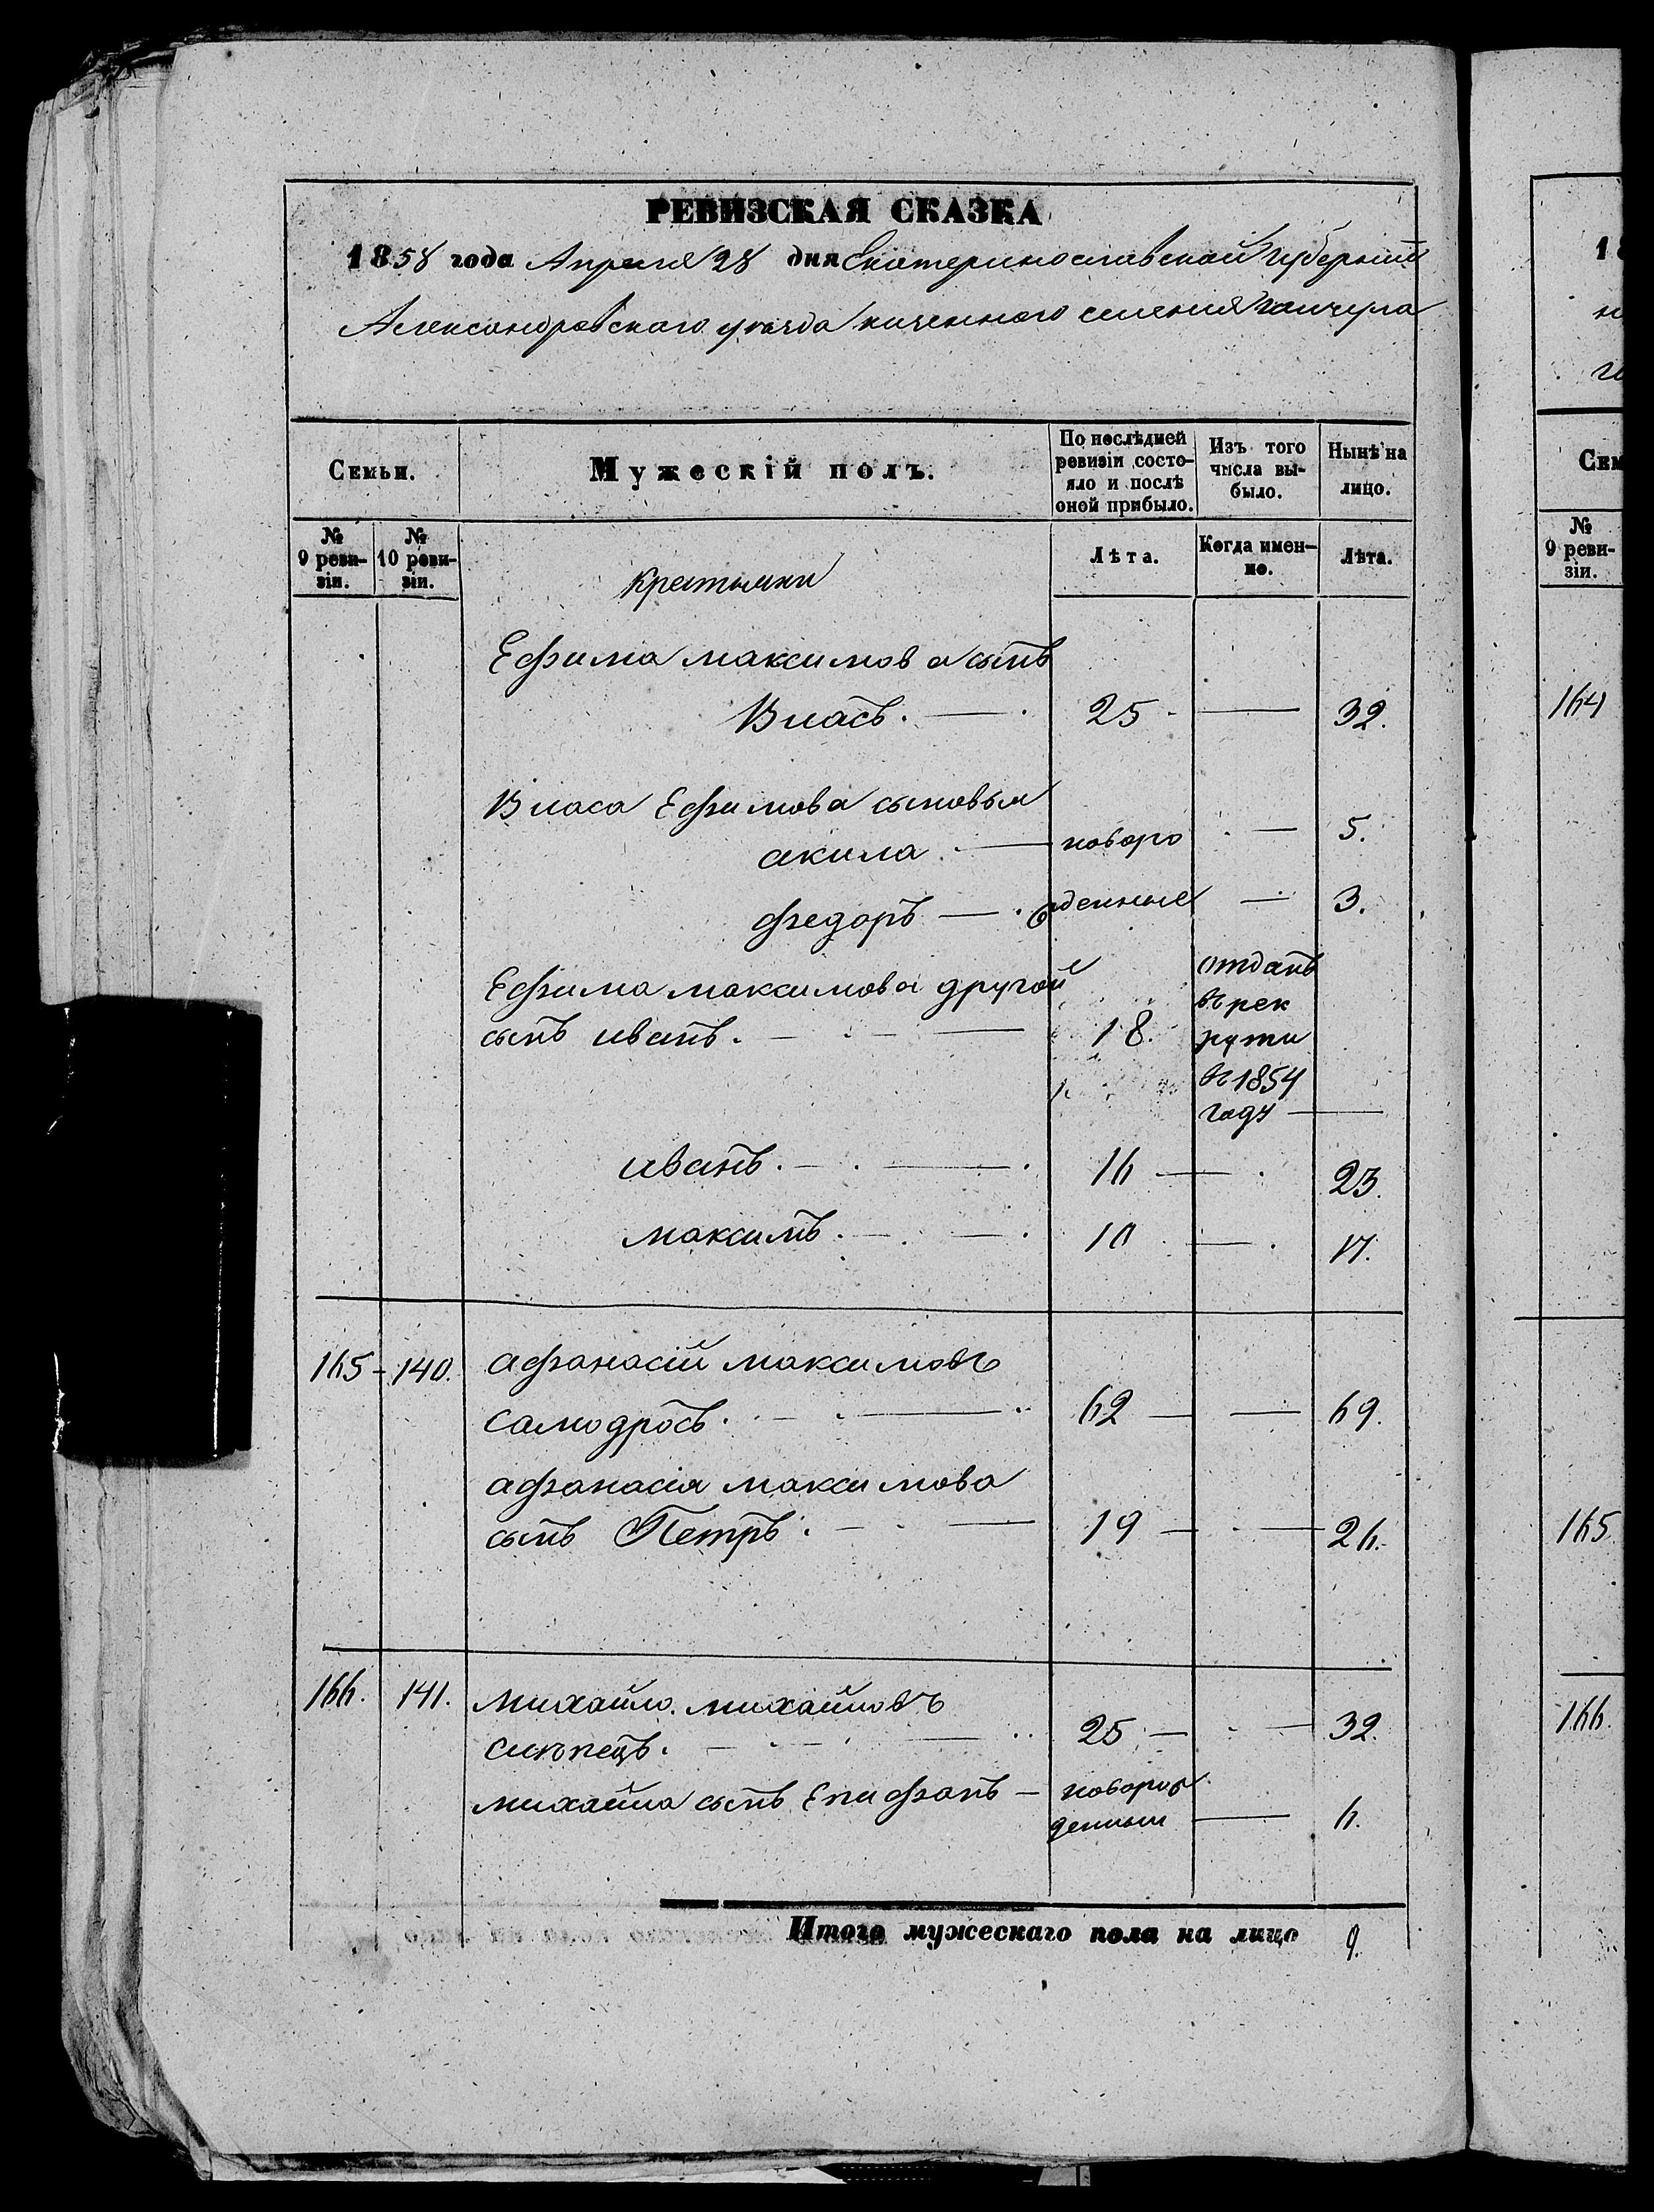 РЕВИЗСКАЯ СКАЗКА
1858 года Апреля 28 дня Екатеринославской Губерніи
Александровскаго уезда казенного селения Гайчула
Семьи. Мужескій полъ. По послѣдней ревизіи состояло и послѣ оной прибыло. Изъ того числа выбыло. Нынѣ на лицо.
№ 9 ревизіи. № 10 ревизіи. Лѣта. Когда именно. Лѣта.
крестьяни
Ефима максимова сынъ
Власъ. 25 32.
Власа Ефимова сыновья
акила. новоро 5.
федоръ жденные 3.
Ефима максимова другой
сынъ иванъ. 18. отданъ
въ рек
рути
въ 1854
году
иванъ. 16 23.
максимъ. 10 17.
165 - 140. афанасій максимовъ
самодросъ. 62 69.
афанасія максимова
сынъ Петръ. 19 26.
166. 141. михайло михайловъ
25 32.
михайла сынъ Епифанъ новорож
денный 6.
Итого мужескаго пола на лицо 9.
18
Сем
№ 9 ревизіи.
164
165
166.